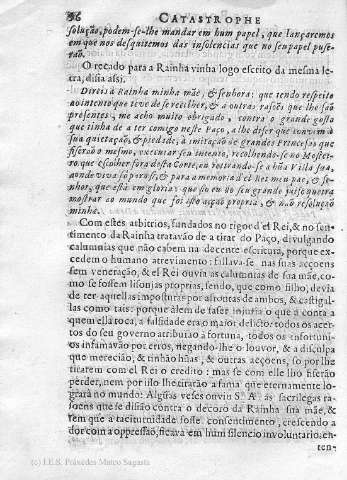 86 CATASTROPHE
solução, podem-se-lhe mandar em hum papel, que lançaremos
em que nos desquitemos das insolencias que no seu papel puse-
rão.
O recado para a Rainha vinha logo escrito da mesma le-
tra, disia assi.
Direis à Rainha minha mãe, & senhora: que tendo respeito
ao intento que teve de se recolher, & a outras rasões que lhe são
presentes, me acho muito obrigado, contra o grande gosto
que tinha de a ter comigo neste Paço, a lhe deser que convem à
sua quietação, & piedade, à imitação de grandes Princesas que
fiserão o mesmo, executar seu intento, recolhendo-se no Mostei-
ro que escolher fora desta Corte, ou retirando-se a hũa Villa sua,
aonde viva só para si, & para a memoria del Rei meu pae, & se-
nhor, que està em gloria: que só eu no seu grande juiso quera
mostrar ao mundo que foi isto acção propria, & não resolução
minha.
Com estes alhitrios, fundados no rigor del Rei, & no sen-
timento da Rainha tratavão de a tirar do Paço, divulgando
calumnias que não cabem na decente escritura, porque ex-
cedem o humano atrevimento: fallava-se nas suas acçoens
sem veneração, & el Rei ouvia as calumnias de sua mãe, co-
mo se fossem lisonjas proprias, sendo, que como filho, devia
de ter aquellas imposturas por afrontas de ambos, & castigal-
las como tais: porque àlem de faser injuria o que a conta a
quem ella toca, a falsidade era o maior delicto: todos os acer-
tos do seu governo atribuião à fortuna, todos os infortuni-
os infamavão por erros, negando-lhe o louvor, & a disculpa
que merecião, & tinhão hũas, & outras acçoens, so por lhe
tirarem com el Rei o credito: mas se com elle lho fiserão
perder, nem por isso lhe tirarão a fama que eternamente lo-
grarà no mundo: Algũas veses ouvio S. A. as sacrilegas ra-
soens que se disião contra o decoro da Rainha sua mãe, &
sem que a taciturnidade fosse consentimento, crescendo a
dor com a oppressão, ficava em hum silencio involuntario, en-
ten-
(c) I.E.S. Práxedes Mateo Sagasta